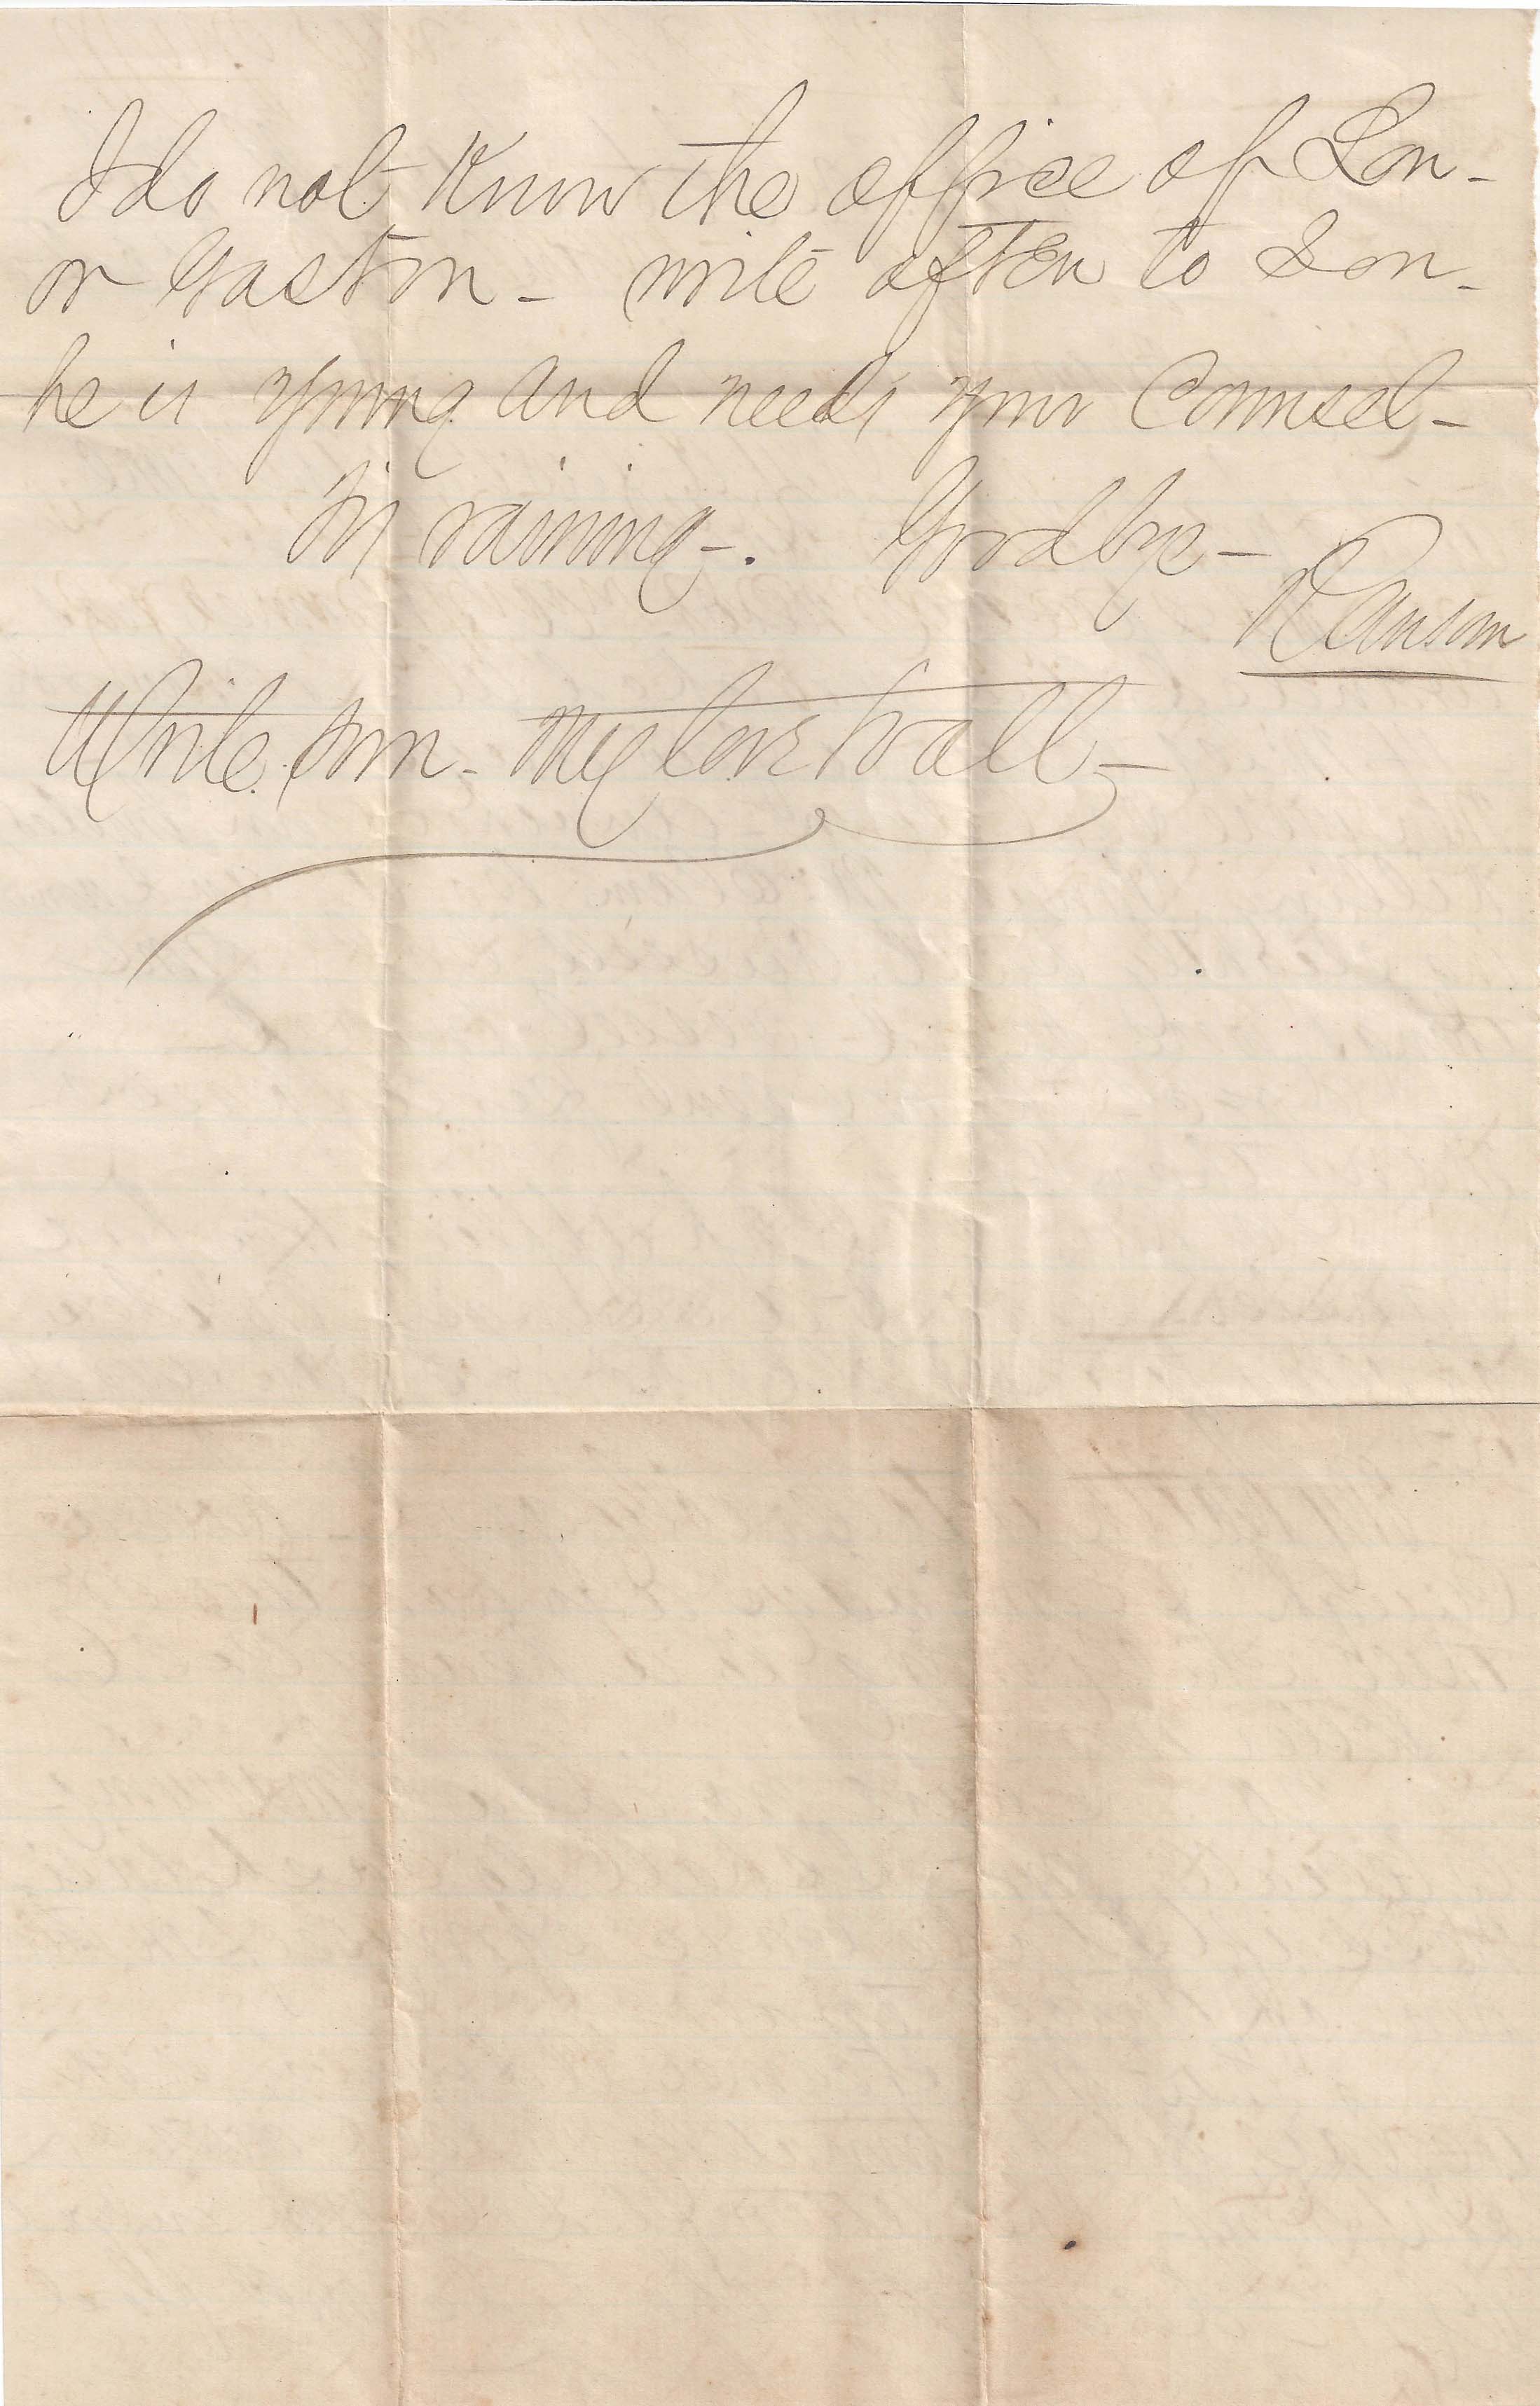 I do not Know the office of Lon -
or Gaston - write often to Lon -
he is young and needs your Counsel -
Tis raining -. Goodbye -
Ransom
Write soon - My love to all -